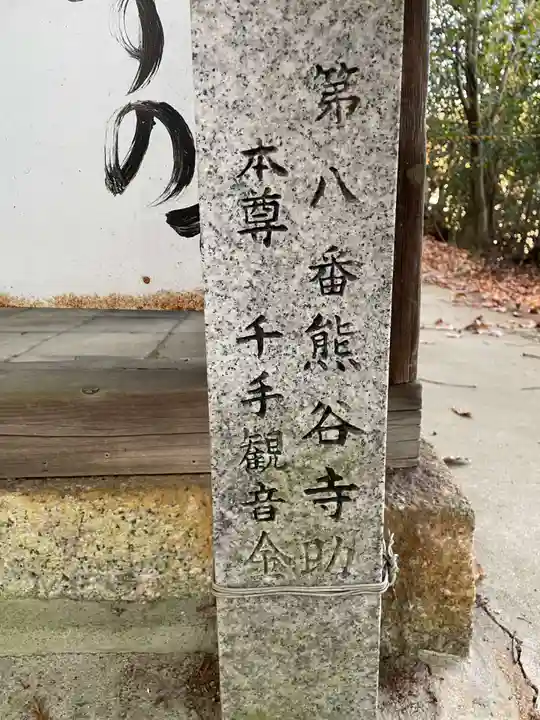 第八番熊谷寺助
本尊千手観音金
の